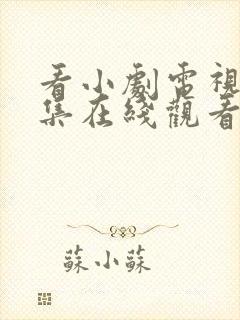 看小劇電視
集在綫觀看
蘇小蘇